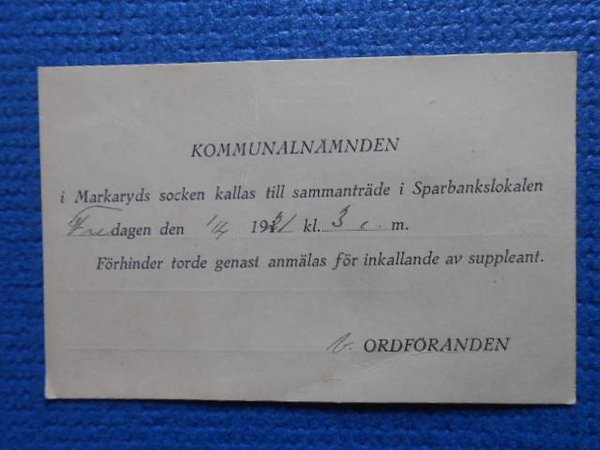 KOMMUNALNÄMNDEN
i Markaryds socken kallas till sammanträde i Sparbankslokalen
Fredagen den 1/4 1921 kl. 3 e. m.
Förhinder torde genast anmälas för inkallande av suppleant.
V. ORDFÖRANDEN